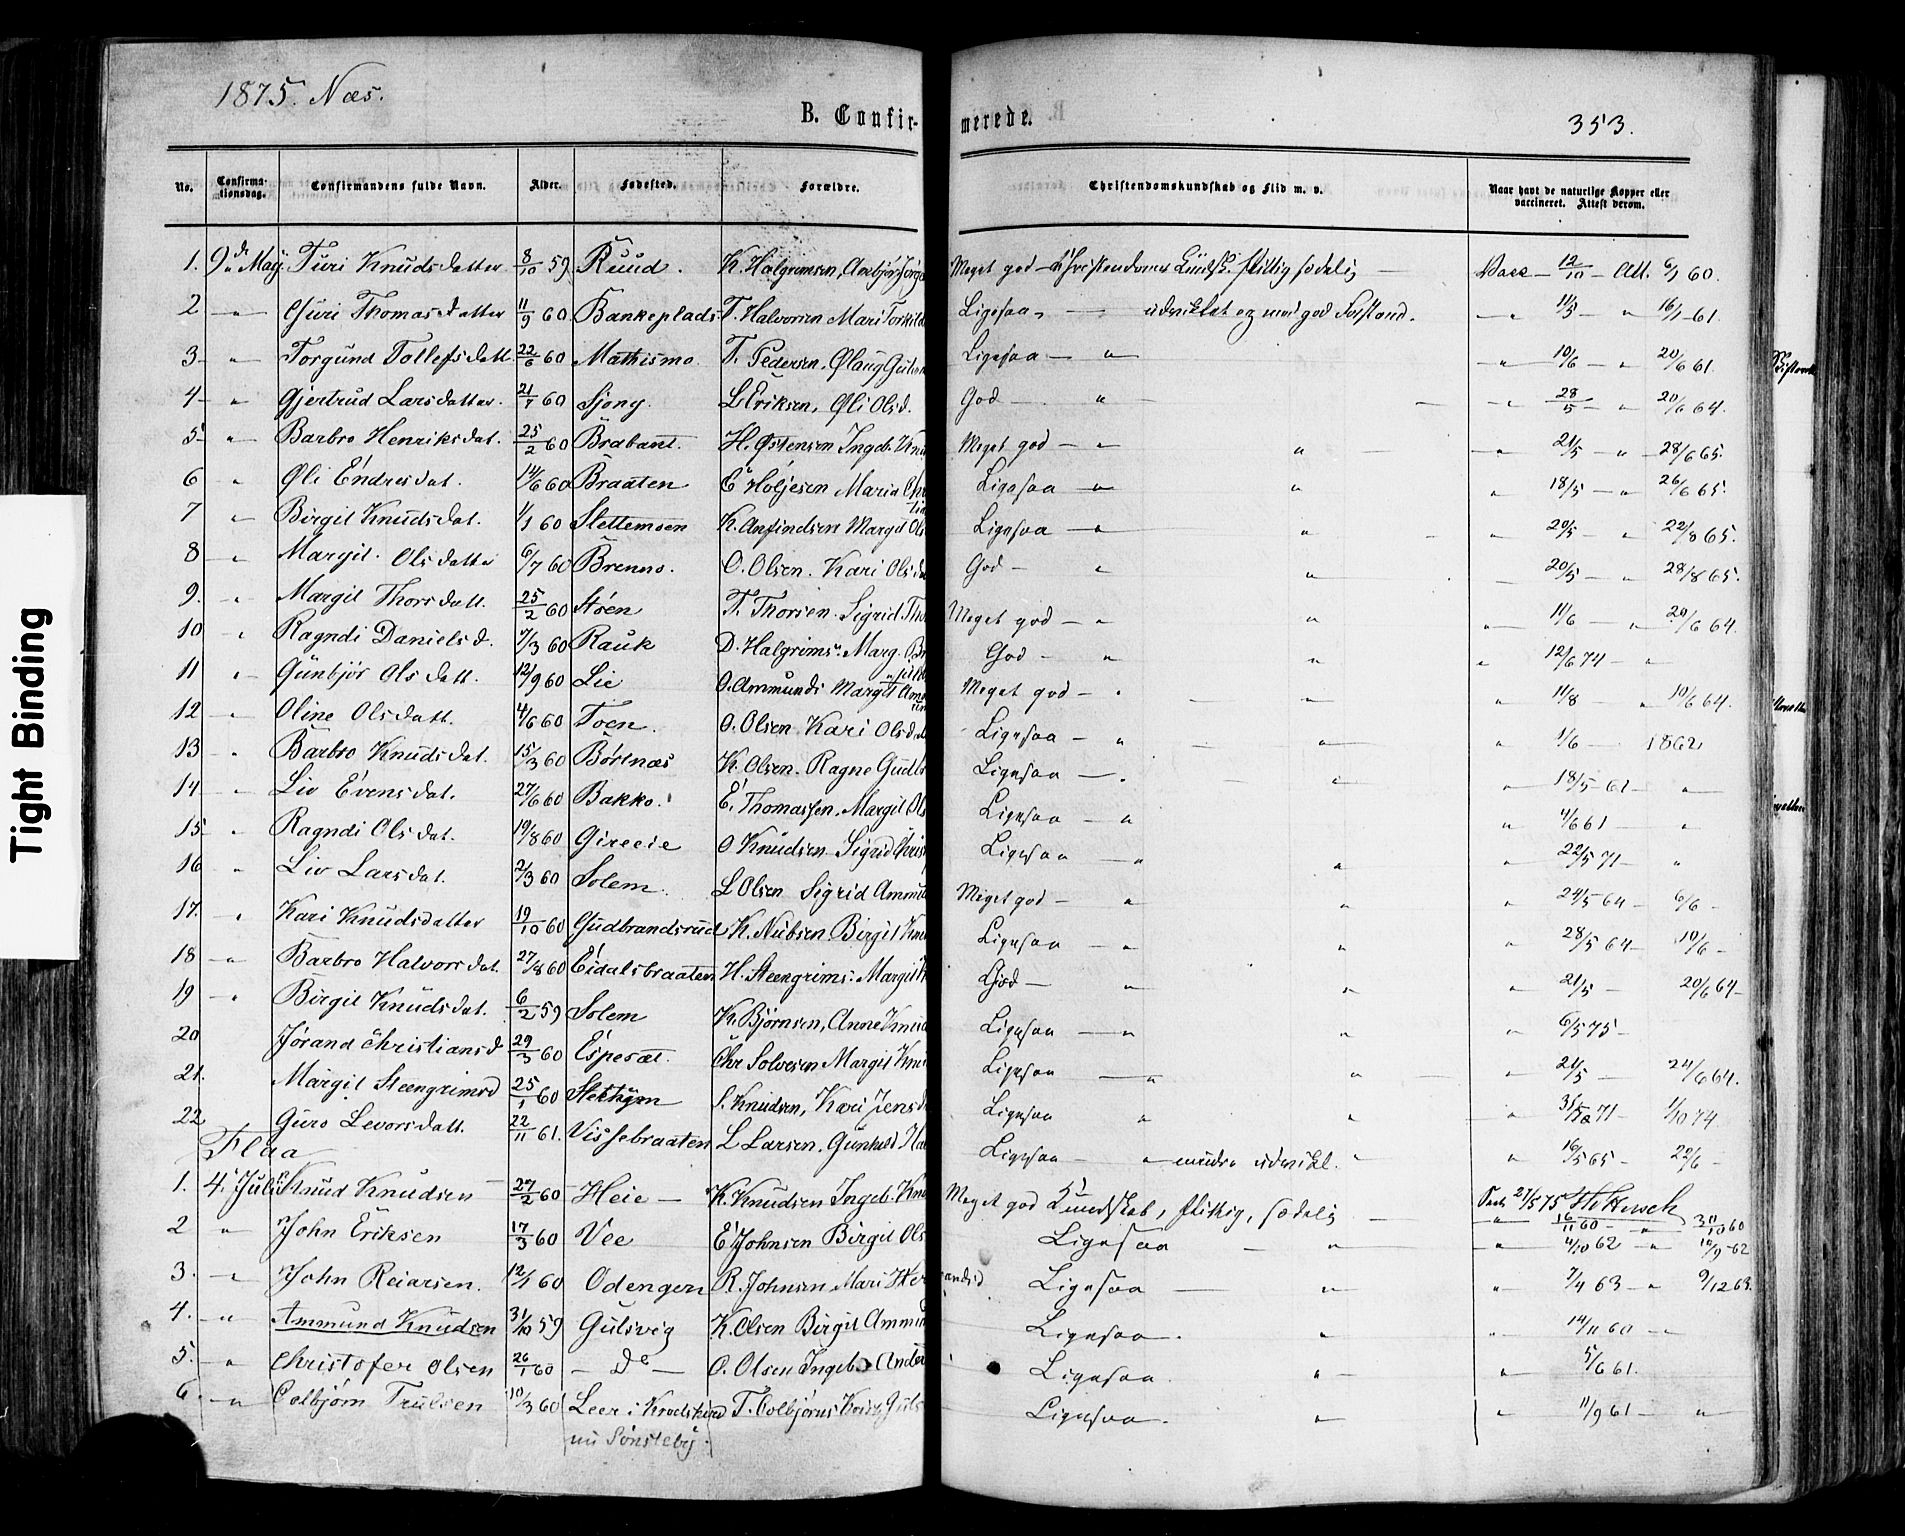 1875. Næs.
B. Confirmerede.
353.
No. Confirmationsdag. Confirmandens fulde Navn. Alder. Fødested. Forældre. Christendomskundskab og Flid m. v. Naar havt de naturlige Kopper eller vaccineret. Attest derom.
1. 9de May. Turi Knudsdatter 8/10 59 Ruud. K. Halgrimsen, Meget god Christendoms Kundsk. flittig sædelig — Vacc — 12/10 — Att. 6/1 60.
2 " Guri Thomasdatter 11/9 60 Bankeplads T. Halvorsen Mari Torkild Ligesaa, — udviklet og med god Forstand. 11/5 — " 16/1 61.
3 " Torgund Tollefsdatt. 22/6 60 Mathismo. T. Pedersen, Ølaug Ligesaa — " " 10/6 — " 20/6 61.
4 " Gjertrud Larsdatter 21/7 60 Sjong. L Eriksen, Øli Olsd. God — " — 28/5 — " 20/6 64.
5 " Barbro Henriksdat. 25/2 60 Brabant. H. Østensen Ingeb. Knu Meget god — " " 21/5 — " 28/6 65.
6 " Øli Endresdat. 14/6 60 Braaten E Holjesen Maria Chr Ligesaa " " " 18/5 — " 26/6 65.
7 " Birgit Knudsdat. 1/1 60 Slettemoen K. Anfindsen Margit Ols Ligesaa — " " " 20/5 — " 22/8 65.
8 " Margit Olsdatter 6/7 60 Brenno. O. Olsen. Kari Olsda God — " " 20/5 — " 28/8 65.
9. " Margit Thorsdatt. 25/2 60 Støen T. Thorsen. Sigrid Tho Meget god — " " " 11/6 — " 20/6 64.
10 " Ragndi Danielsd. 7/3 60 Rauk D. Halgrims. Marg. God — " " " 12/6 74 — "
11 " Gunbjør Olsdatt. 12/9 60 Lie O. Ammunds Margit Am Meget god — " " 11/8 " 10/6 64.
12 " Oline Olsdatt. 4/6 60 Toen. O. Olsen Kari Olsdat Ligesaa — " " " 1/6 — 1862
13 " Barbro Knudsdat. 15/3 60 Børtnæs K. Olsen. Ragne Gudb Ligesaa — " " " 18/5 61 — "
14 " Liv Evensdat. 27/6 60 Bakko. E. Thomassen. Margit Ols Ligesaa — " " 4/6 61 — "
15 " Ragndi Olsdat. 19/8 60 Gireeie O Knudsen Sigrid Chris Ligesaa — " " " 22/5 71 — "
16 " Liv Larsdat. 2/3 60 Solem. L Olsen Sigrid Ammu Meget god — " " " 24/5 64 — 6/6 —
17. " Kari Knudsdatter 19/10 60 Gudbrandsrud K. Nubsen Birgit Knu Ligesaa — " " " 28/5 64 — 10/6 —
18 " Barbro Halvorsdat. 27/8 60 Eidalsbraaten H. Steengrims: Margit God — " " " 21/5 — 20/6 64 —
19 " Birgit Knudsdat. 6/2 59 Solem K. Bjørnsen, Anne Knud Ligesaa — " " " 6/5 75 —
20 Jørand Christiansd 29/3 60 Espeset. Chr Solvesen Margit Knu Ligesaa — " " " 21/5 — 24/6 64.
21. Margit Steengrimsd 25/1 60 S. Knudsen, Kari Jensd Ligesaa " " " 71 — 1/10 74.
22 Guro Levorsdatt. 22/11 61. Vissebraaten L Larsen. Gunhild Ha Ligesaa — " mindre udvikl. " " 16/5 65 — 22/6 —
Flaa
1. 4. Juli Knud Knudsen 27/2 60 Heie — K. Knudsen Ingeb. Knu Meget god Kundskab, flittig, sædelig — 21/5 75
" 16/11 60 — " 31/10 60
2 " John Eriksen 17/3 60 Vee E Johnsen Birgit Ols Ligesaa — " " 4/10 62 — " 10/9 62
3. " John Reiarsen. 12/1 60 Odengen R. Johnsen Mari Her Ligesaa — " " 7/4 63 — " 9/12 63.
4. " Ammund Knudsen 31/10 59 Gulsvig K. Olsen Birgit Ammun Ligesaa. " " 14/11 60 — "
5. " Christofer Olsen 26/1 60 — Do — O. Olsen Ingeb. Ander Ligesaa. " — " 5/6 61.
6. " Colbjørn Trulsen 10/3 60 Leer i Krødsherred T. Colbjørns Ligesaa. " " 11/9 61 — "
nu Sønsteby.
Tight Binding